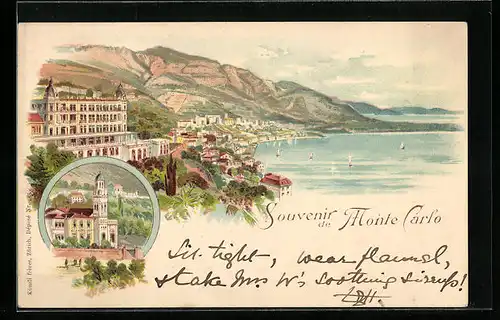 Künzli Frères, Zürich, Déposé
Souvenir
de Monte Carlo
Sit tight, wear flannel,
& take Mrs W's soothing sirup!